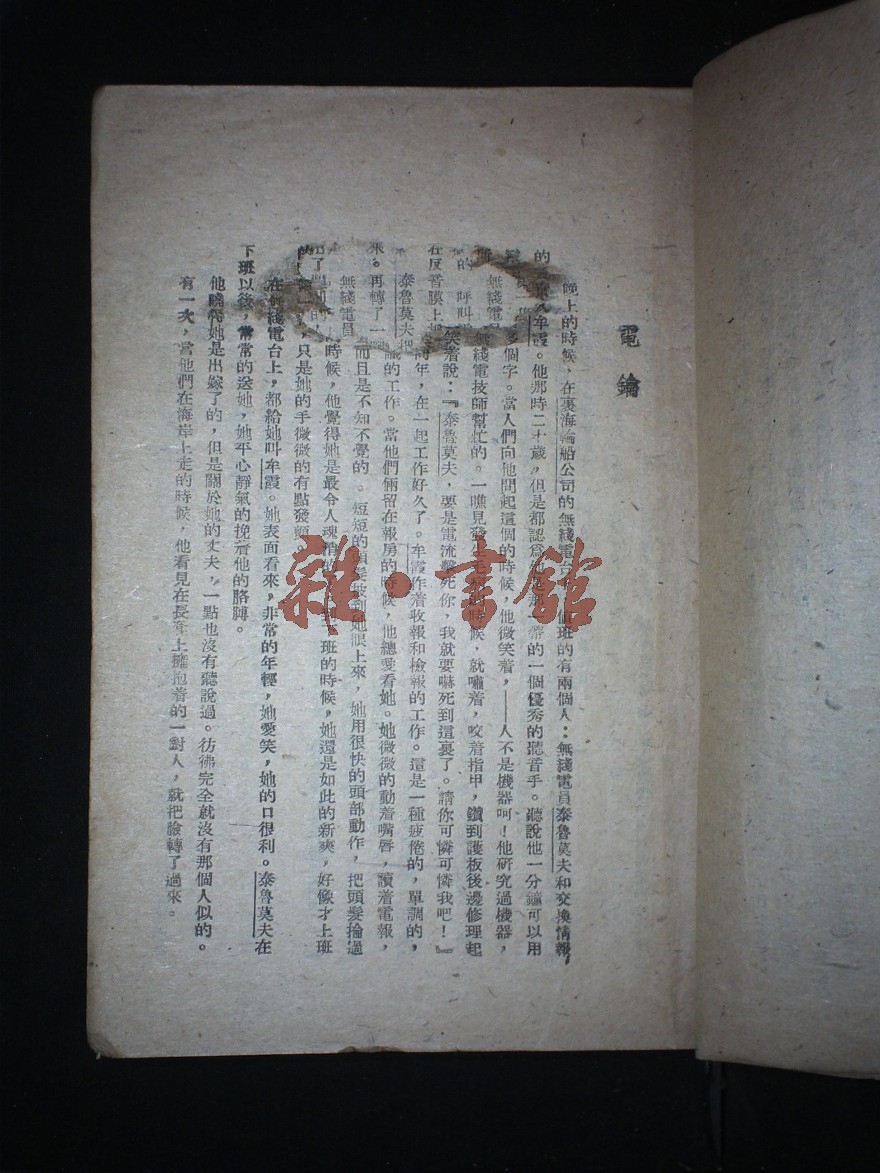 電鑰
晚上的時候，在裏海輪船公司的無綫電台 值班的有兩個人：無綫電員泰魯莫夫和交換情報
的 牟霞。他那時二十歲，但是都認爲他是那一帶的一個優秀的聽音手。聽說他一分鐘可以用
多個字。當人們向他問起這個的時候，他微笑着，——人不是機器呵！他研究過機器，
無綫電員 無綫電技師幫忙的。一瞧見發生毛病的時候，就嘯着，咬着指甲，鑽到護板後邊修理起
的 呼叫 笑着說：『泰魯莫夫，要是電流擊死你，我就要嚇死到這裏了。請你可憐可憐我吧！』
在反音膜上 兩年，在一起工作好久了。牟霞作着收報和檢報的工作。這是一種疲倦的，單調的，
泰魯莫夫把 的工作。當他們倆留在報房的時候，他總愛看她。她微微的動着嘴唇，讀着電報，
來。再轉了一 而且是不知不覺的。短短的頭髮披到她眼上來，她用很快的頭部動作，把頭髮掄過
無綫電員 時候，他覺得她是最令人魂消的 班的時候，她還是如此的新爽，好像才上班
的 只是她的手微微的有點發顫。
在無綫電台上，都給她叫牟霞。她表面看來，非常的年輕，她愛笑，她的口很利。泰魯莫夫在
下班以後，常常的送她，她平心靜氣的挽着他的胳膊。
他曉得她是出嫁了的，但是關於她的丈夫，一點也沒有聽說過。彷彿完全就沒有那個人似的。
有一次，當他們在海岸上走的時候，他看見在長凳上擁抱着的一對人，就把臉轉了過來。
雜·書館